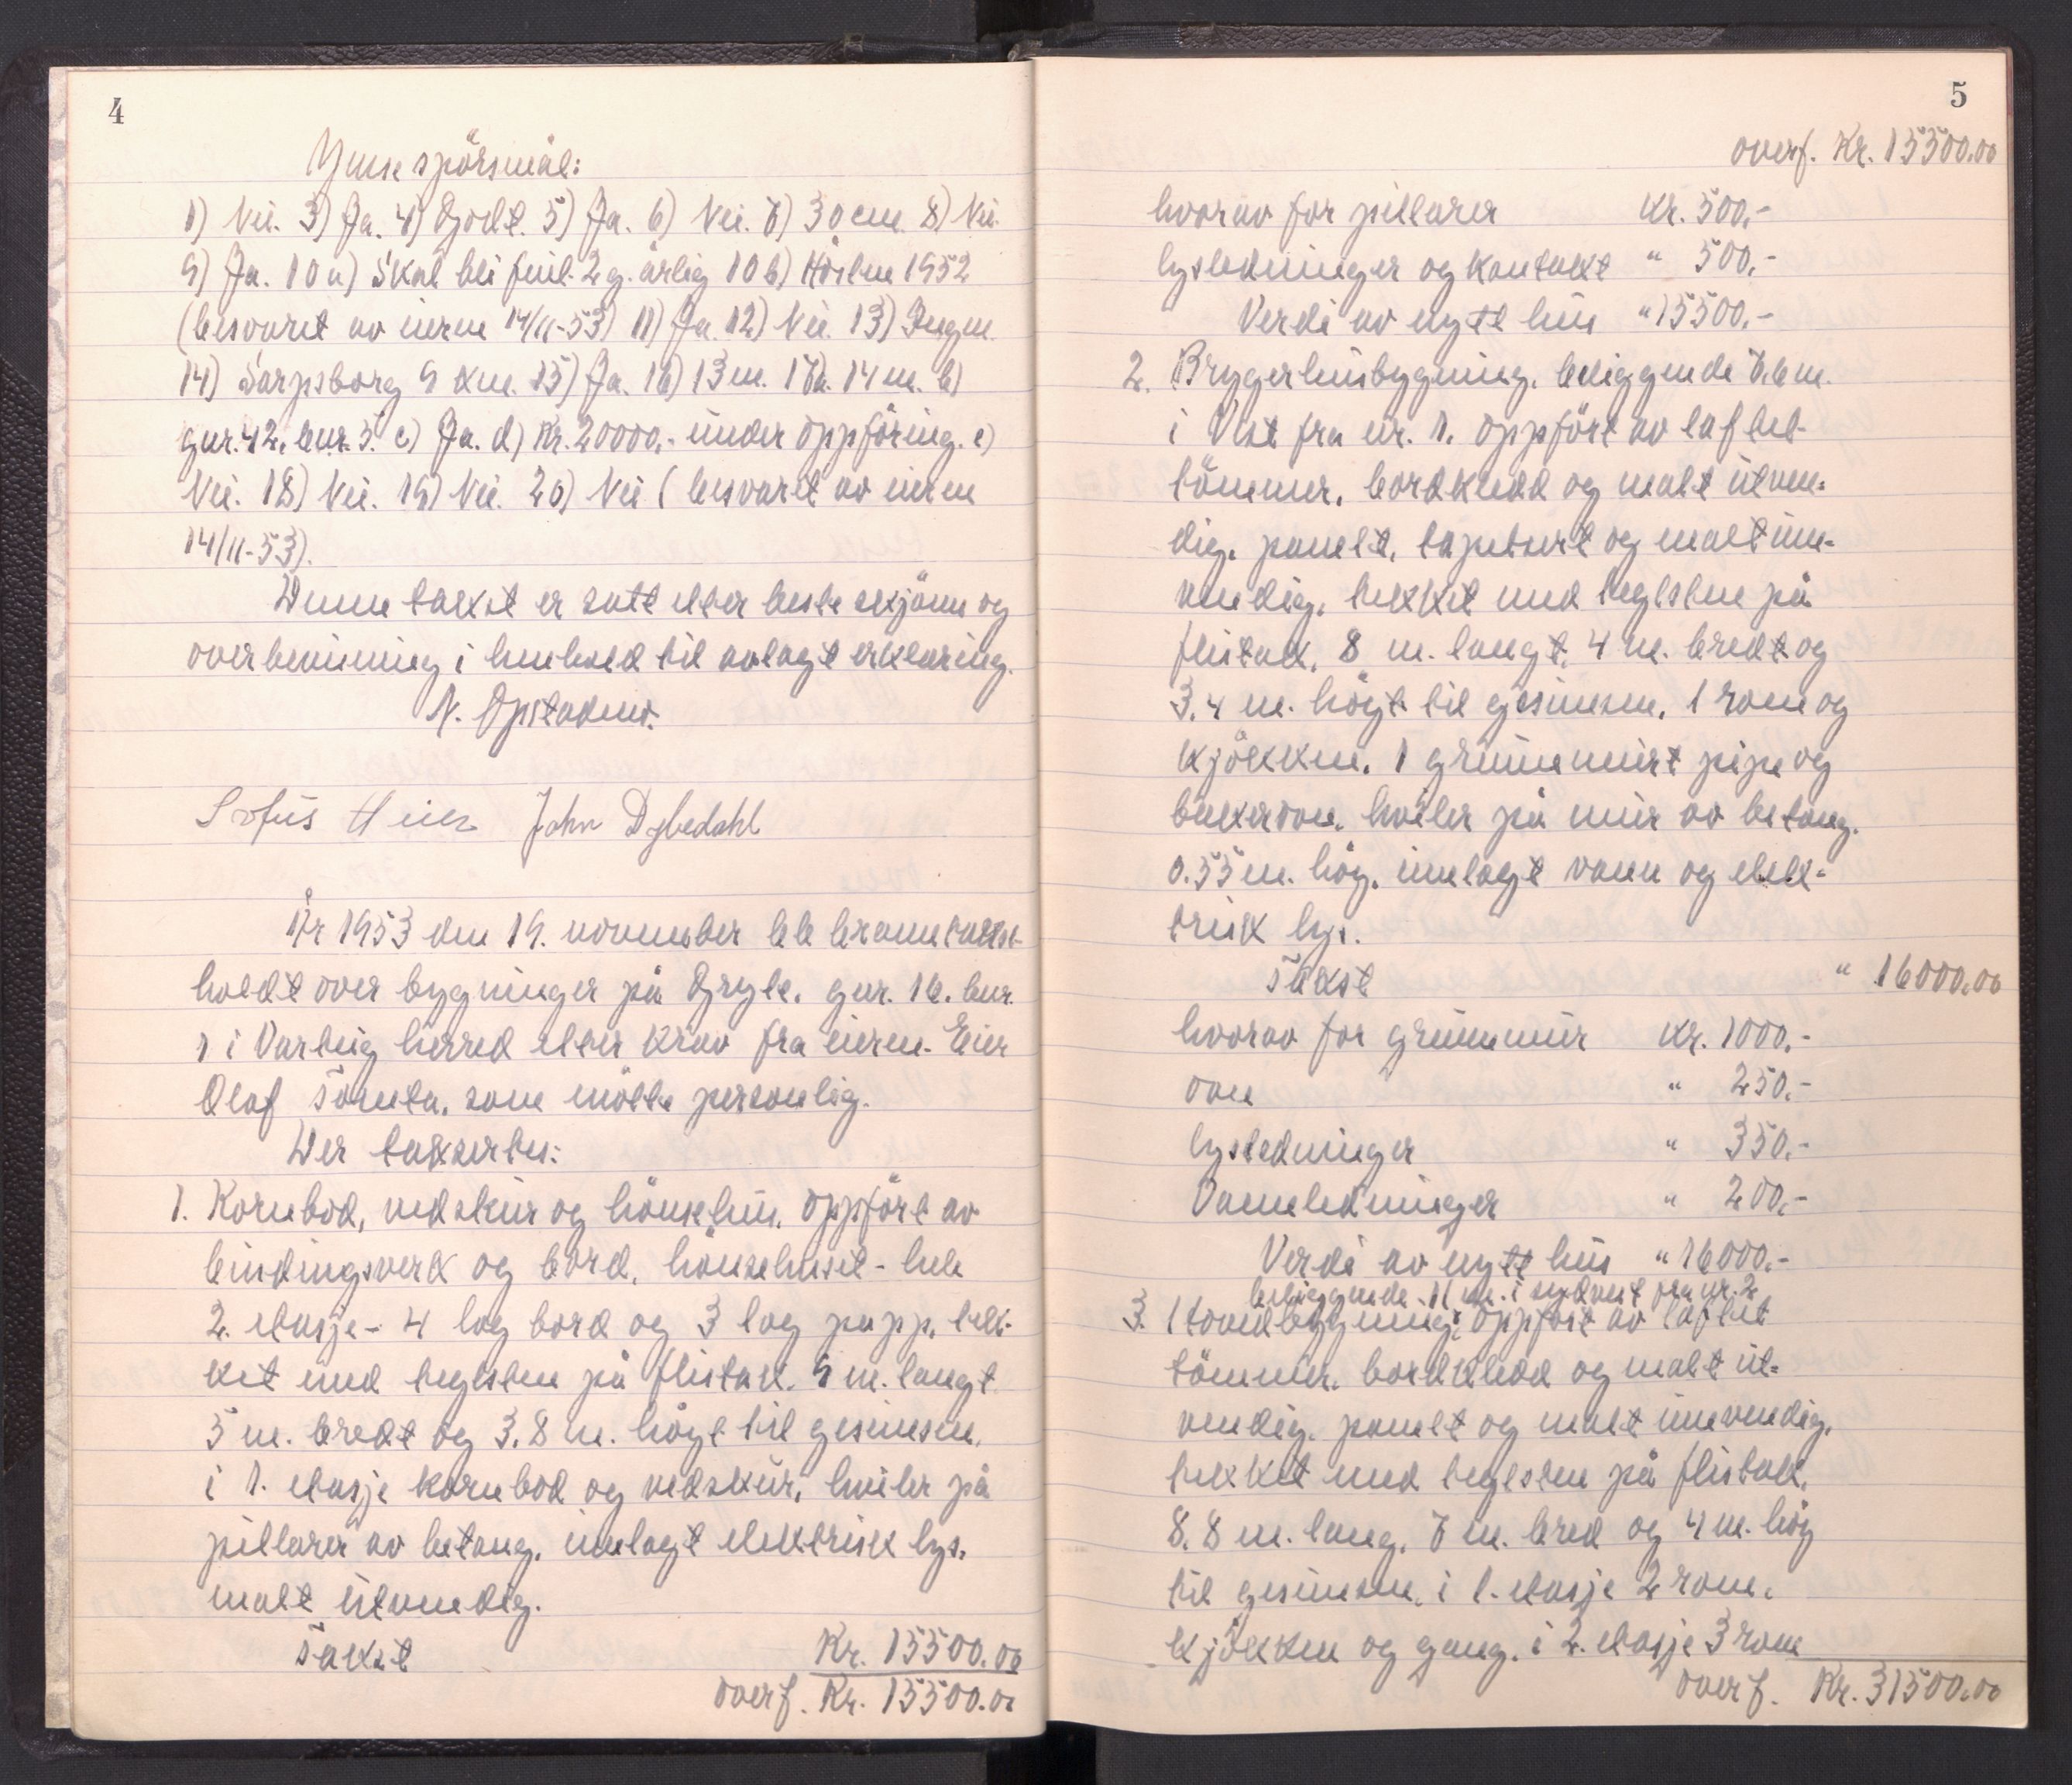 4
Ymse spörsmål:
1) Nei. 3) Ja. 4) Godt. 5) Ja. 6) Nei. 7) 30 cm. 8) Nei.
9) Ja. 10 a) Skal bli feid 2 g. årlig 10 b) Hösten 1952
(besvart av eieren 14/11-53) 11) Ja. 12) Nei. 13) Ingen.
14) Sarpsborg 9 km. 15) Ja. 16) 13 m. 17 a. 14 m. b)
gnr. 42, bnr. 5. c) Ja. d) Kr. 20000.- under oppföring. e)
Nei. 18) Nei. 19) Nei. 20) Nei (besvart av eieren
14/11-53).
Denne takst er satt etter beste skjönn og
overbevisning i henhold til avlagt erklæring.
N. Opstadens.
Sofus Heier John Dybedahl
År 1953 den 19. november ble branntakst
holdt over bygninger på Gryte, gnr. 16. bnr.
1 i Varteig herred etter krav fra eieren. Eier
Olaf Tomta, som mötte personlig.
Der taksertes:
1. Kornbod, vedskur og hönsehus, oppfört av
bindingsverk og bord, hönsehuset - hele
2. etasje - 4 lag bord og 3 lag papp, tek-
ket med teglsten på flistak. 9 m. langt
5 m. bredt og 3.8 m. högt til gesimsen,
i 1. etasje kornbod og vedskur, hviler på
pillarer av betong, innlagt elektrisk lys,
malt utvendig.
Takst Kr. 15500.00
overf. Kr. 15500.00
5
overf. Kr. 15500.00
hvorav for pillarer Kr. 500.-
lysledninger og kontakt " 500.-
Verdi av nytt hus " 15500.-
2. Bryggerhusbygning, beliggende 7.6 m.
i Vest fra nr. 1, oppfört av laftet
tömmer, bordkledd og malt utven-
dig, panelt, tapetsert og malt inn-
vendig, tekket med teglsten på
flistak, 8 m. langt, 4 m. bredt og
3.4 m. högt til gesimsen, 1 rom og
kjökken, 1 grunnmurt pipe og
bakerovn, hviler på mur av betong,
0.55 m. hög, innlagt vann og elek-
trisk lys.
Takst " 16000.00
hvorav for grunnmur Kr. 1000.-
ovn " 250.-
lysledninger " 350.-
Vannledninger " 200.-
Verdi av nytt hus " 16000.-
beliggende 11 m. i sydvest fra nr. 2
3. Hovedbygning, oppfört av laftet
tömmer, bordkledd og malt ut-
vendig, panelt og malt innvendig,
tekket med teglsten på flistak,
8.8 m. lang, 7 m. bred og 4 m. hög
til gesimsen, i 1. etasje 2 rom,
kjökken og gang, i 2. etasje 3 rom
overf. Kr. 31500.00